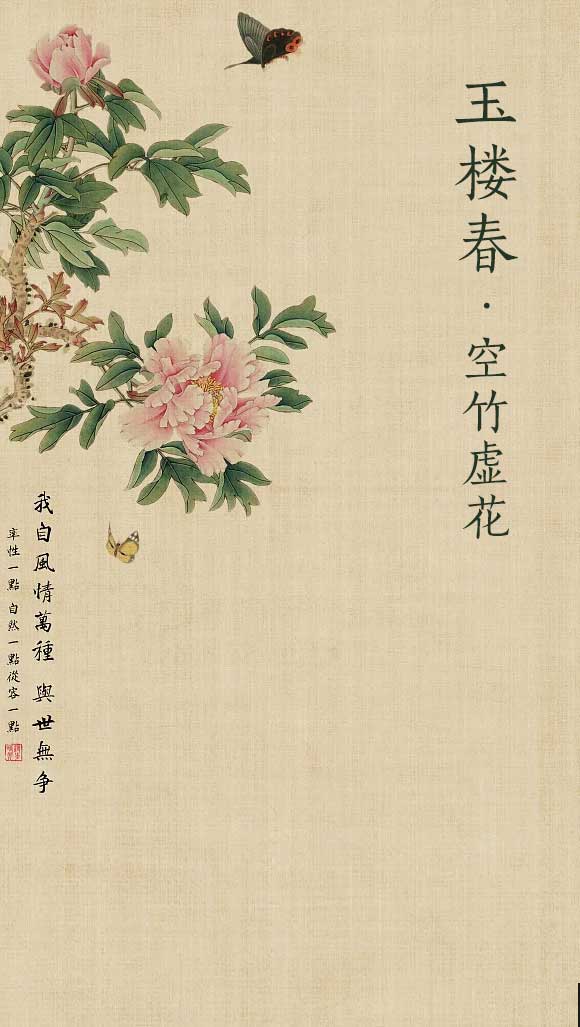 玉楼春·空竹虚花
我自風情萬種 與世無争
率性一點 自然一點從容一點